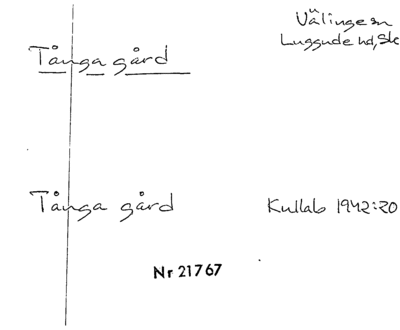 Välinge sn
Luggude hd, Sk
Tånga gård
Tånga gård
Kullab 1942:20
Nr 21767